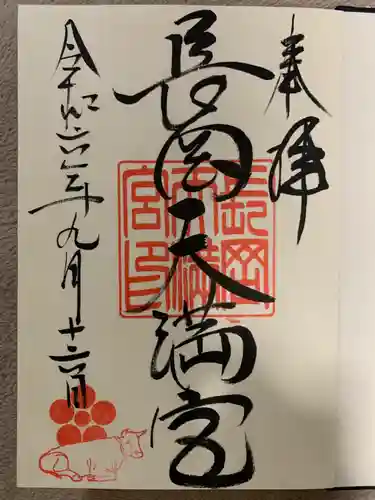 奉拝
長岡天満宮
長岡天満宮印
令和六年九月十三日